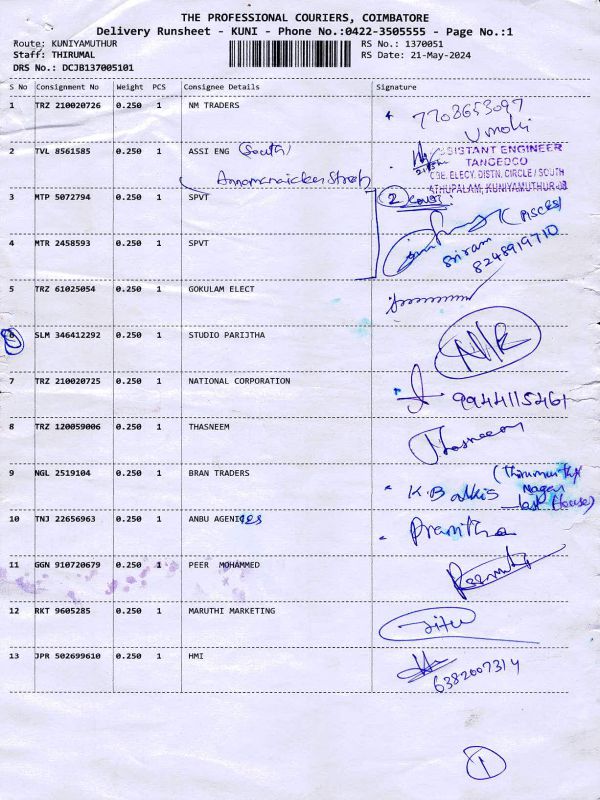 THE PROFESSIONAL COURIERS, COIMBATORE
Delivery Runsheet - KUNI - Phone No.:0422-3505555 - Page No.:1
Route: KUNIYAMUTHUR RS No.: 1370051
Staff: THIRUMAL RS Date: 21-May-2024
DRS No.: DCJB137005101
S No Consignment No Weight PCS Consignee Details Signature
1 TRZ 210020726 0.250 1 NM TRADERS 7708653097
2 TVL 8561585 0.250 1 ASSI ENG (South)
ASSISTANT ENGINEER
TANGEDCO
CBE. ELECY. DISTN. CIRCLE / SOUTH
KUNIYAMUTHUR
3 MTP 5072794 0.250 1 SPVT 2 cover (PISCES)
4 MTR 2458593 0.250 1 SPVT Sriram
8248919710
5 TRZ 61025054 0.250 1 GOKULAM ELECT
6 SLM 346412292 0.250 1 STUDIO PARIJTHA N/R
7 TRZ 210020725 0.250 1 NATIONAL CORPORATION 9944115461
8 TRZ 120059006 0.250 1 THASNEEM Thasneem
9 NGL 2519104 0.250 1 BRAN TRADERS K.B
Nagar
last House)
10 TNJ 22656963 0.250 1 ANBU AGENIES Pranitha
11 GGN 910720679 0.250 1 PEER MOHAMMED
12 RKT 9605285 0.250 1 MARUTHI MARKETING Jitu
13 JPR 502699610 0.250 1 HMI
6382007314
1